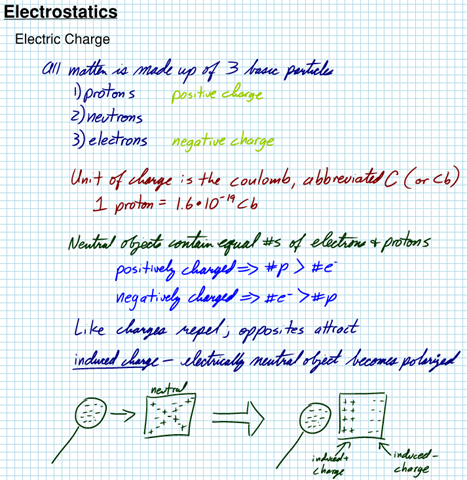 Electrostatics
Electric Charge
All matter is made up of 3 basic particles
1) protons positive charge
2) neutrons
3) electrons negative charge
Unit of charge is the coulomb, abbreviated C (or Cb)
1 proton = 1.6•10⁻¹⁹ Cb
Neutral objects contain equal #s of electrons + protons
positively charged => #p > #e⁻
negatively charged => #e⁻ > #p
Like charges repel, opposites attract
induced charge – electrically neutral object becomes polarized
neutral
induced + charge
induced – charge